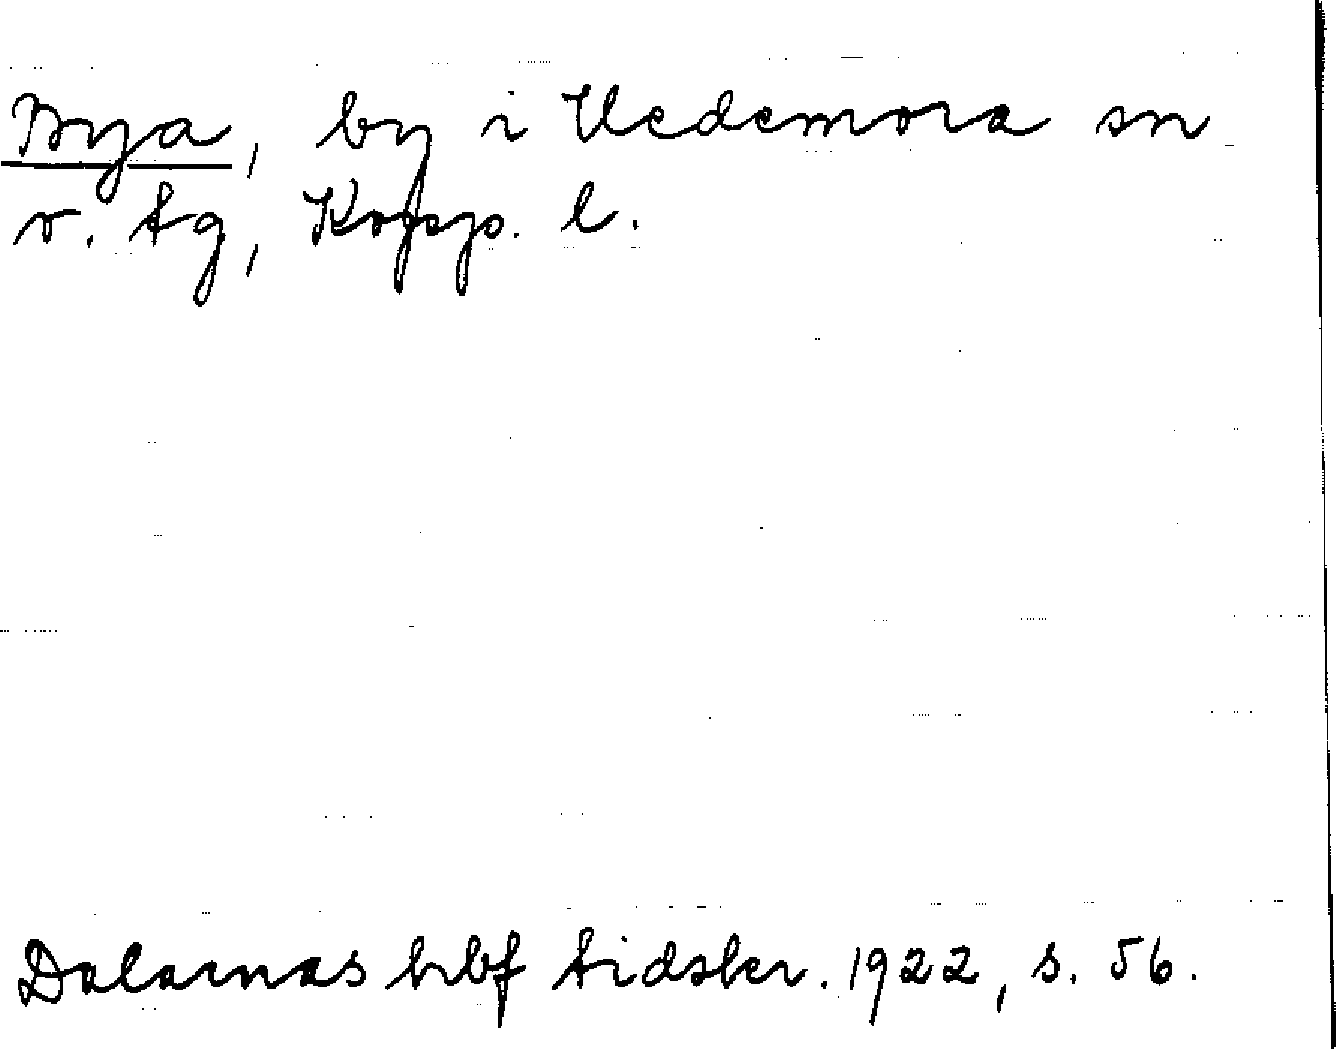 Bya, by i Hedemora sn
o. tg, Kopp. l.
Dalarnas hbf tidskr. 1922, s. 56.